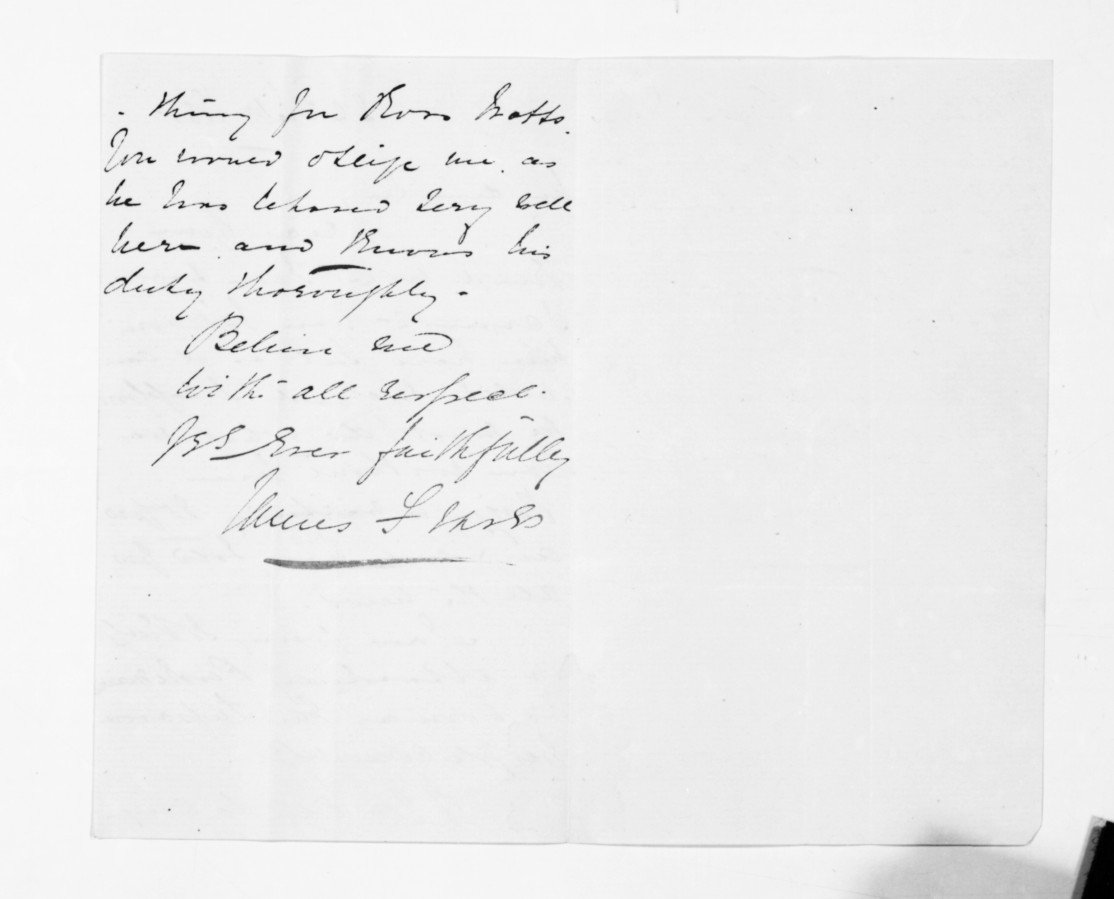 - thing for Poor Watts.
You would oblige me, as
he has behaved very well
here and knows his
duty thoroughly -
Believe me
with all respect.
Yrs Ever faithfully
James